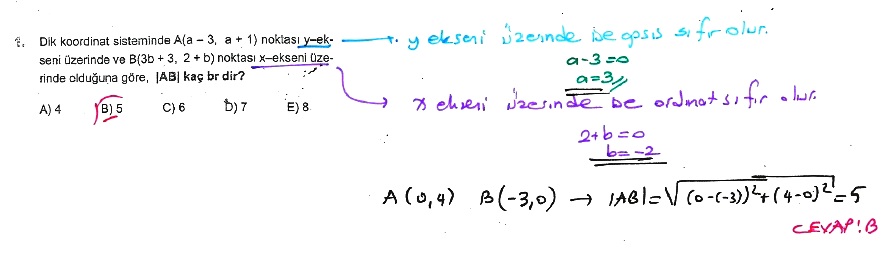 2. Dik koordinat sisteminde A(a – 3, a + 1) noktası y–ek-
seni üzerinde ve B(3b + 3, 2 + b) noktası x–ekseni üze-
rinde olduğuna göre, |AB| kaç br dir?
A) 4 B) 5 C) 6 D) 7 E) 8
y ekseni üzerinde ise apsis sıfır olur.
a-3=0
a=3
x ekseni üzerinde ise ordinat sıfır olur.
2+b=0
b=-2
A(0,4) B(-3,0) → |AB|=√(0-(-3))²+(4-0)²=5
CEVAP:B